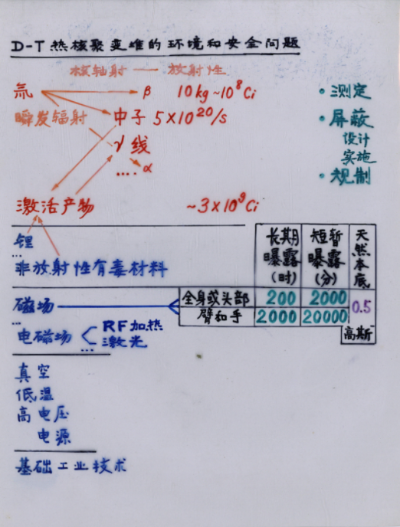 D-T热核聚变堆的环境和安全问题
核辐射 — 放射性
氚 β 10kg ~10⁸Ci
·测定
瞬发辐射 中子 5×10²⁰/s
·屏蔽
设计
实施
γ线
.... α
·规制
激活产物 ~3×10⁹Ci
锂
...
非放射性有毒材料
长期曝露(时) 短暂曝露(分) 天然本底
磁场 全身或头部 200 2000 0.5
臂和手 2000 20000
高斯
...
电磁场 RF加热
激光
...
真空
低温
高电压
电源
基础工业技术